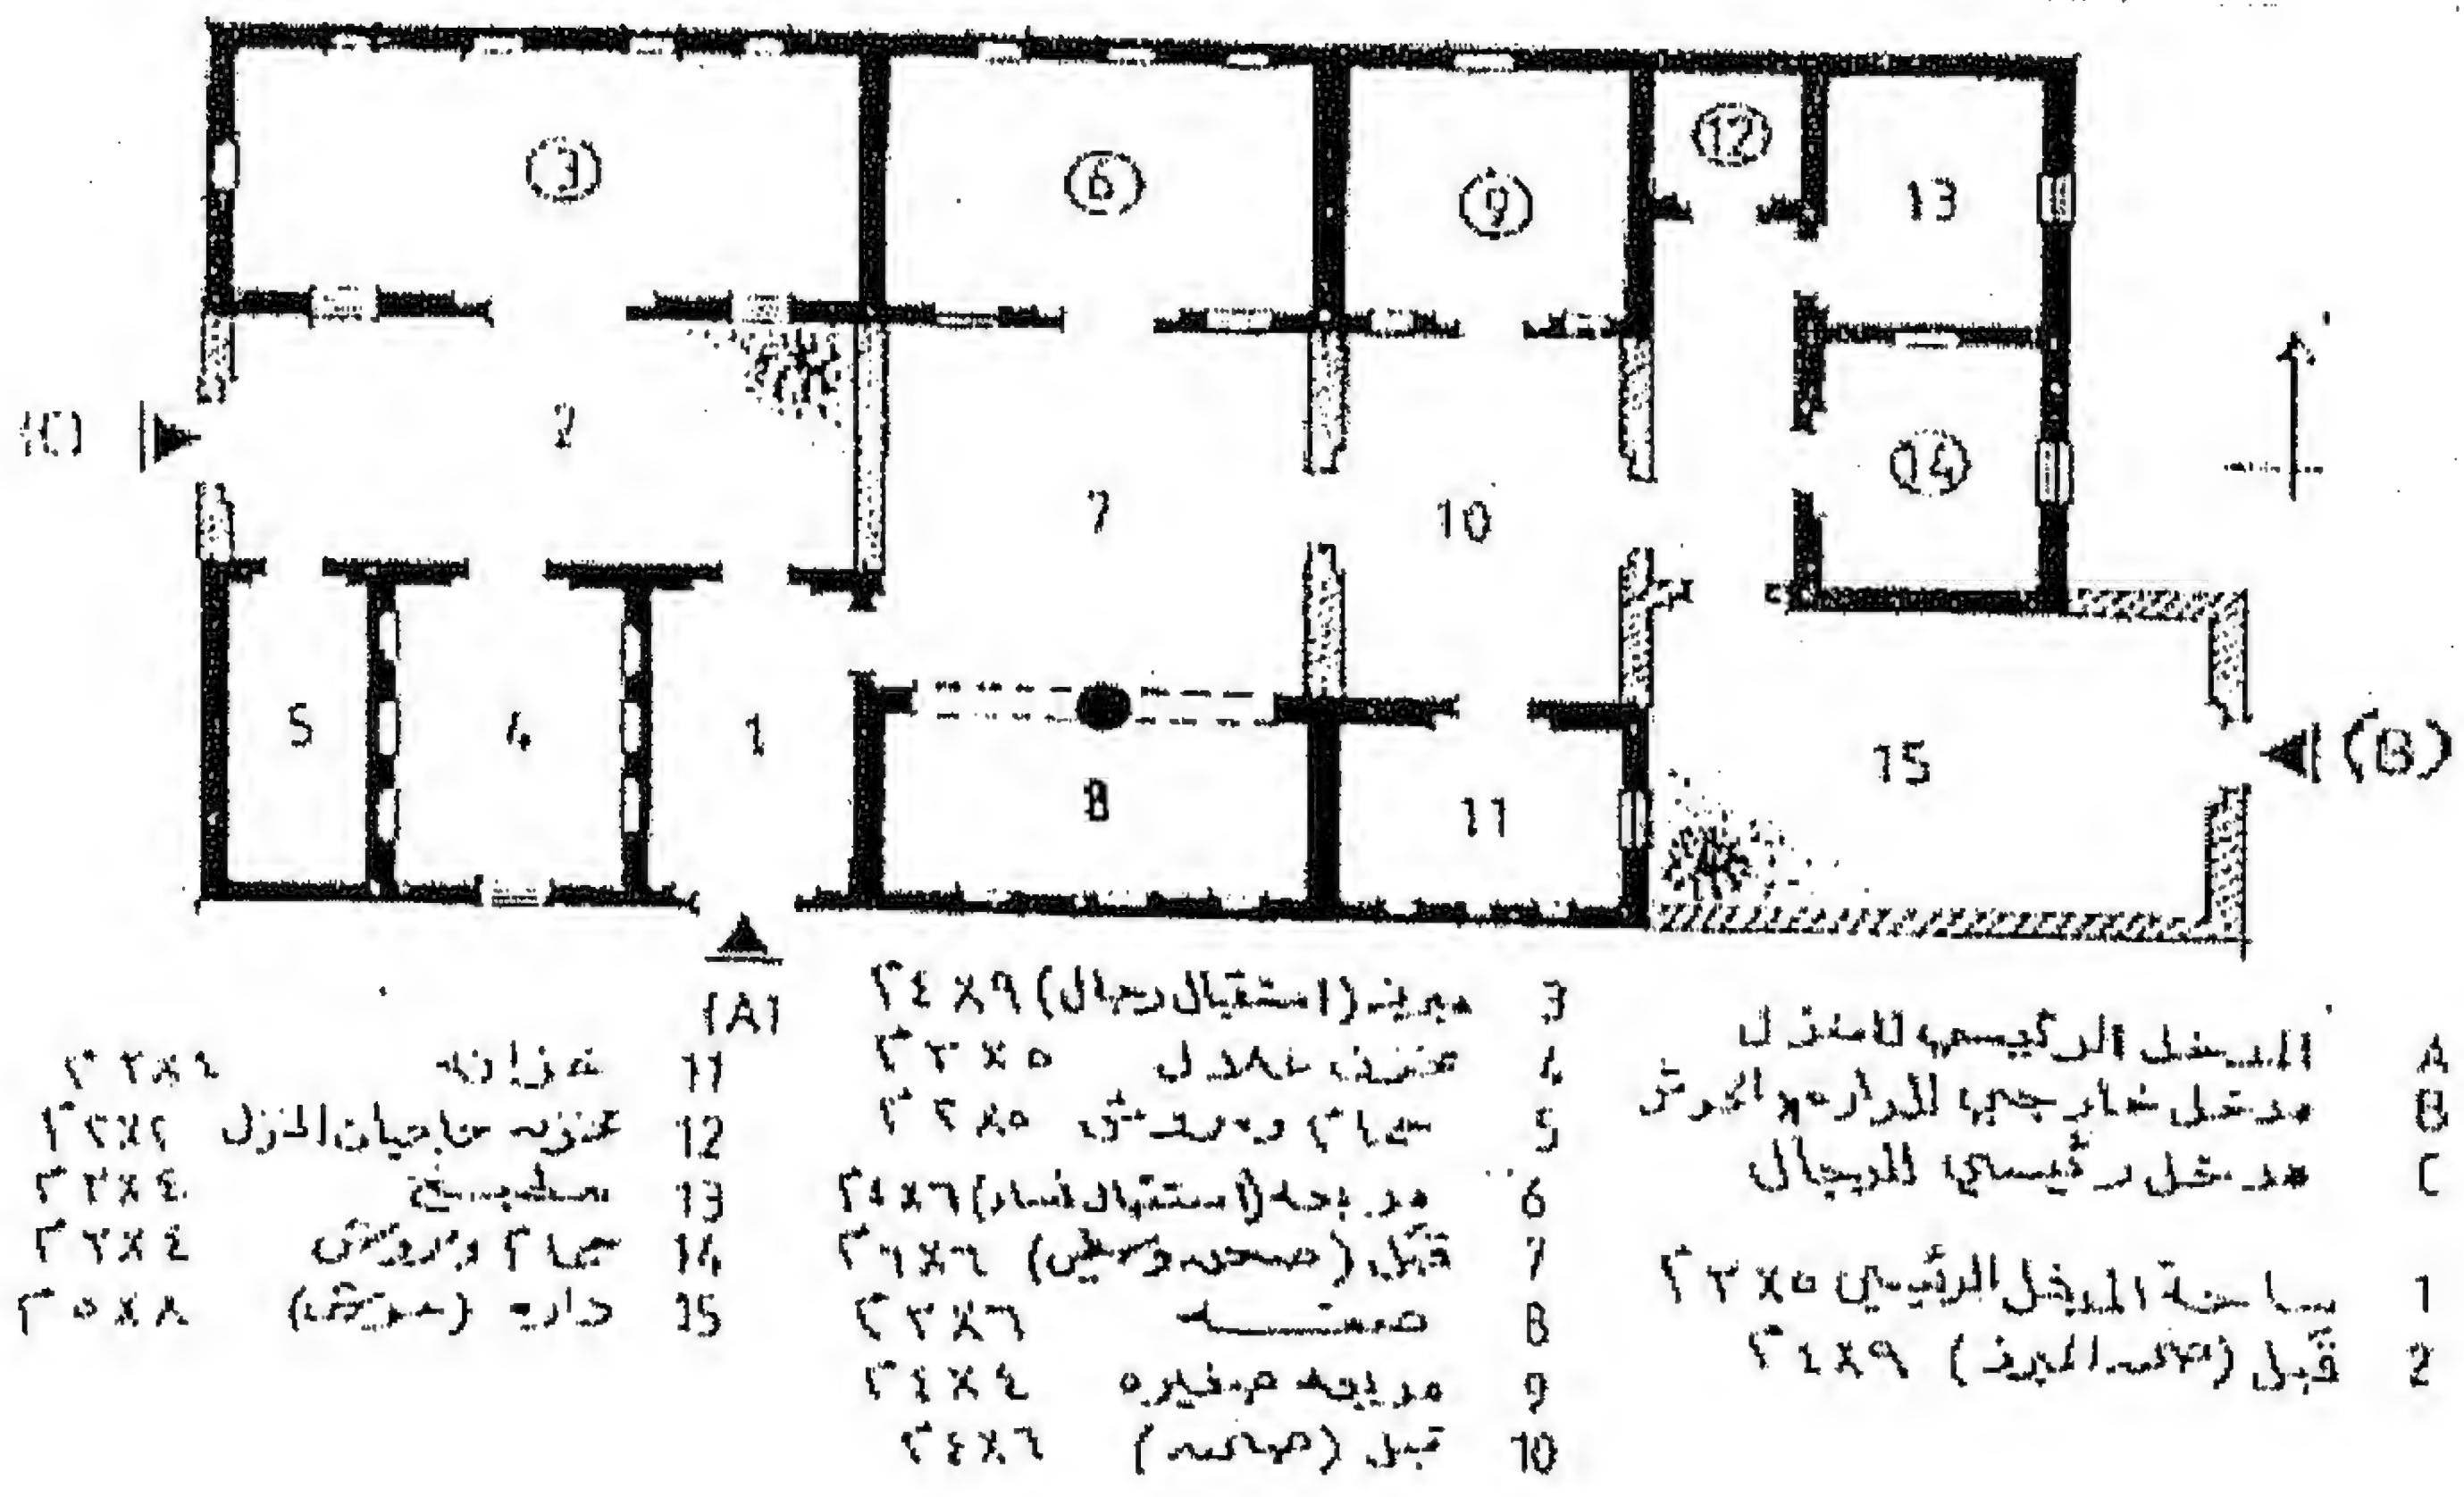 3
6
9
12
13
2
(C)
7
10
14
5
4
1
8
11
15
(B)
(A)
A المدخل الرئيسي للمنزل
B مدخل خارجي
C مدخل رئيسي للرجال
1 ساحة المدخل الرئيسي ٥×٣ م
2 قبل (صحن المبرز) ٩×٤ م
3 مبرز (استقبال رجال) ٩×٤ م
4 مخزن ٥×٣ م
5 حمام ومروش ٥×٢ م
6 مربعه (استقبال نساء) ٦×٤ م
7 قبل (صحن رئيسي) ٦×٦ م
8 صفه ٦×٣ م
9 مربعه صغيره ٤×٤ م
10 قبل (صحن) ٦×٤ م
11 خزانه ٤×٣ م
12 حاجيات المنزل ٢×٢ م
13 مطبخ ٤×٣ م
14 حمام ومروش ٤×٣ م
15 (حوش) ٨×٥ م